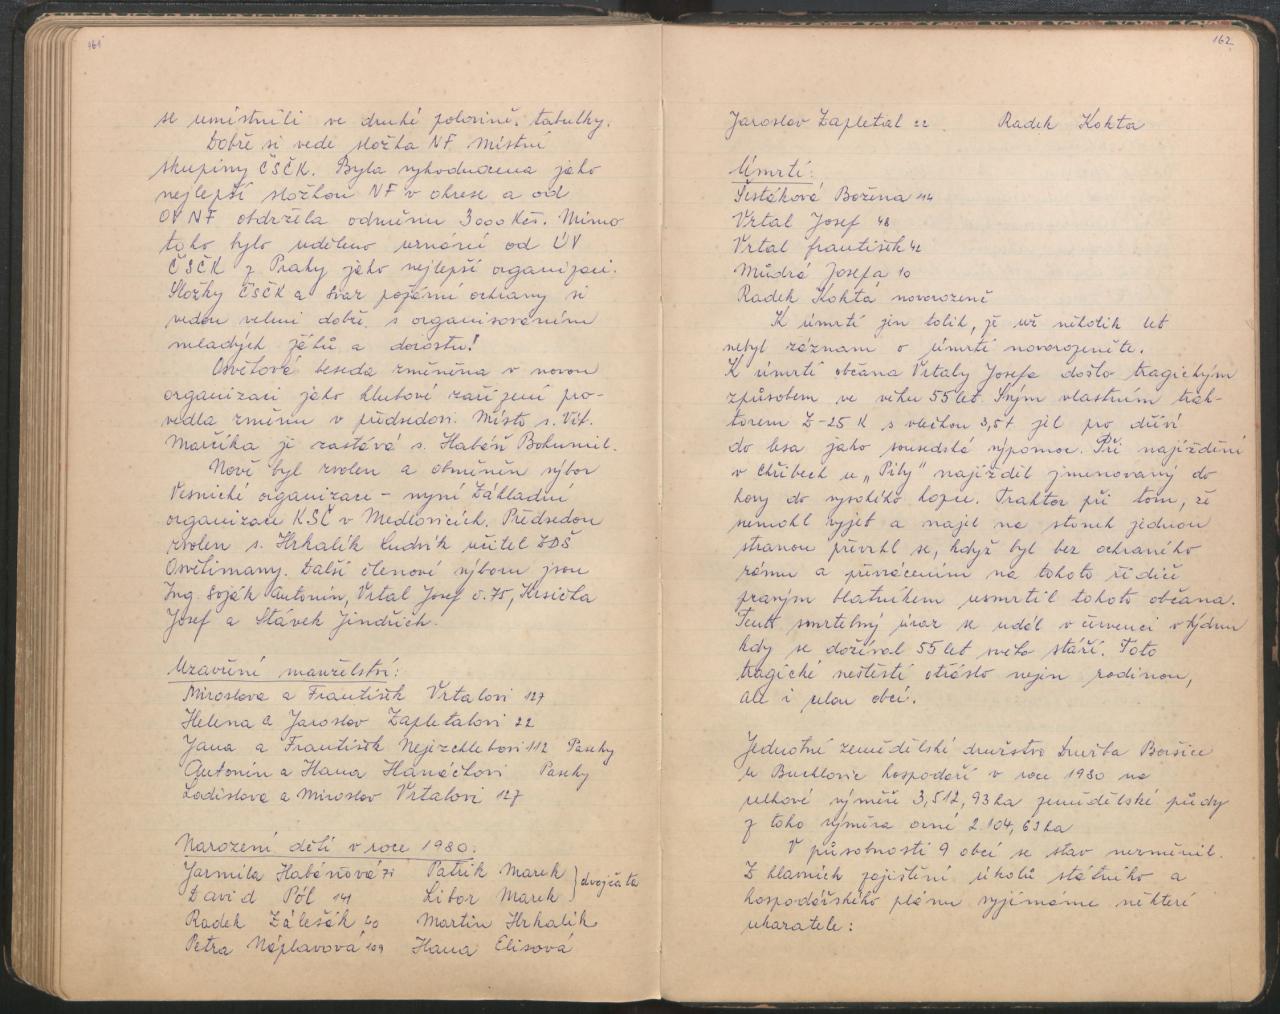 161
se umístnili ve druhé polovině tabulky.
Dobře si vede složka NF místní
skupiny ČSČK. Byla vyhodnocena jako
nejlepší složkou NF v okrese a od
OV NF obdržela odměnu 3000 Kčs. Mimo
toho bylo uděleno uznání od ÚV
ČSČK z Prahy jako nejlepší organizaci.
Složky ČSČK a Svaz požární ochrany si
vedou velmi dobře s organisováním
mladých žáků a dorostu!
Osvětová beseda změněna v novou
organizaci jako klubové zařízení pro-
vedla změnu v předsedovi. Místo s. Vít.
Marčíka je zastává s. Habáň Bohumil.
Nově byl zvolen a obměněn výbor
Vesnické organizace - nyní Základní
organizace KSČ v Medlovicích. Předsedou
zvolen s. Hrkalík Ludvík učitel ZDŠ
Osvětimany. Další členové výboru jsou
Ing. Soják Antonín, Vrtal Josef č. 75, Krsička
Josef a Stávek Jindřich.
Uzavření manželství:
Miroslava a František Vrtalovi 127
Helena a Jaroslav Zapletalovi 22
Jana a František Nejezchlebovi 112 Paseky
Antonín a Hana Hanáčkovi Paseky
Ladislava a Miroslav Vrtalovi 127
Narození dětí v roce 1980.
Jarmila Habáňová 71 Patrik Marek
David Pól 141 Libor Marek } dvojčata
Radek Zálešák 40 Martin Hrkalík
Petra Náplavová 109 Hana Elisová
162
Jaroslav Zapletal 22 Radek Kohta
Úmrtí:
Šestáková Božena 114
Vrtal Josef 48
Vrtal František 42
Můdrá Josefa 10
Radek Kohta novorozeně
K úmrtí jen tolik, že už několik let
nebyl záznam o úmrtí novorozeněte.
K úmrtí občana Vrtaly Josefa došlo tragickým
způsobem ve věku 55 let. Svým vlastním trak-
torem Z-25 K s vlečkou 3,5 t jel pro dříví
do lesa jako sousedská výpomoc. Při najíždění
v Chřibech u „Pily" najížděl jmenovaný do
hory do vysokého kopce. Traktor při tom, že
nemohl vyjet a najel na stoneh jednou
stranou převrhl se, když byl bez ochraného
rámu a převrácením na tohoto řidiče
pravým blatníkem usmrtil tohoto občana.
Tento smrtelný úraz se udál v červenci v týdnu
kdy se dožíval 55 let svého stáří. Toto
tragické neštěstí otřáslo nejen rodinou,
ale i celou obcí.
Jednotné zemědělské družstvo Družba Boršice
u Buchlovic hospodaří v roce 1980 na
celkové výměře 3,512,93 ha zemědělské půdy
z toho výměra orné 2.104,63 ha
V působnosti 9 obcí se stav nezměnil.
Z hlavních zajištění úkolů státního a
hospodářského plánu vyjímáme některé
ukazatele: